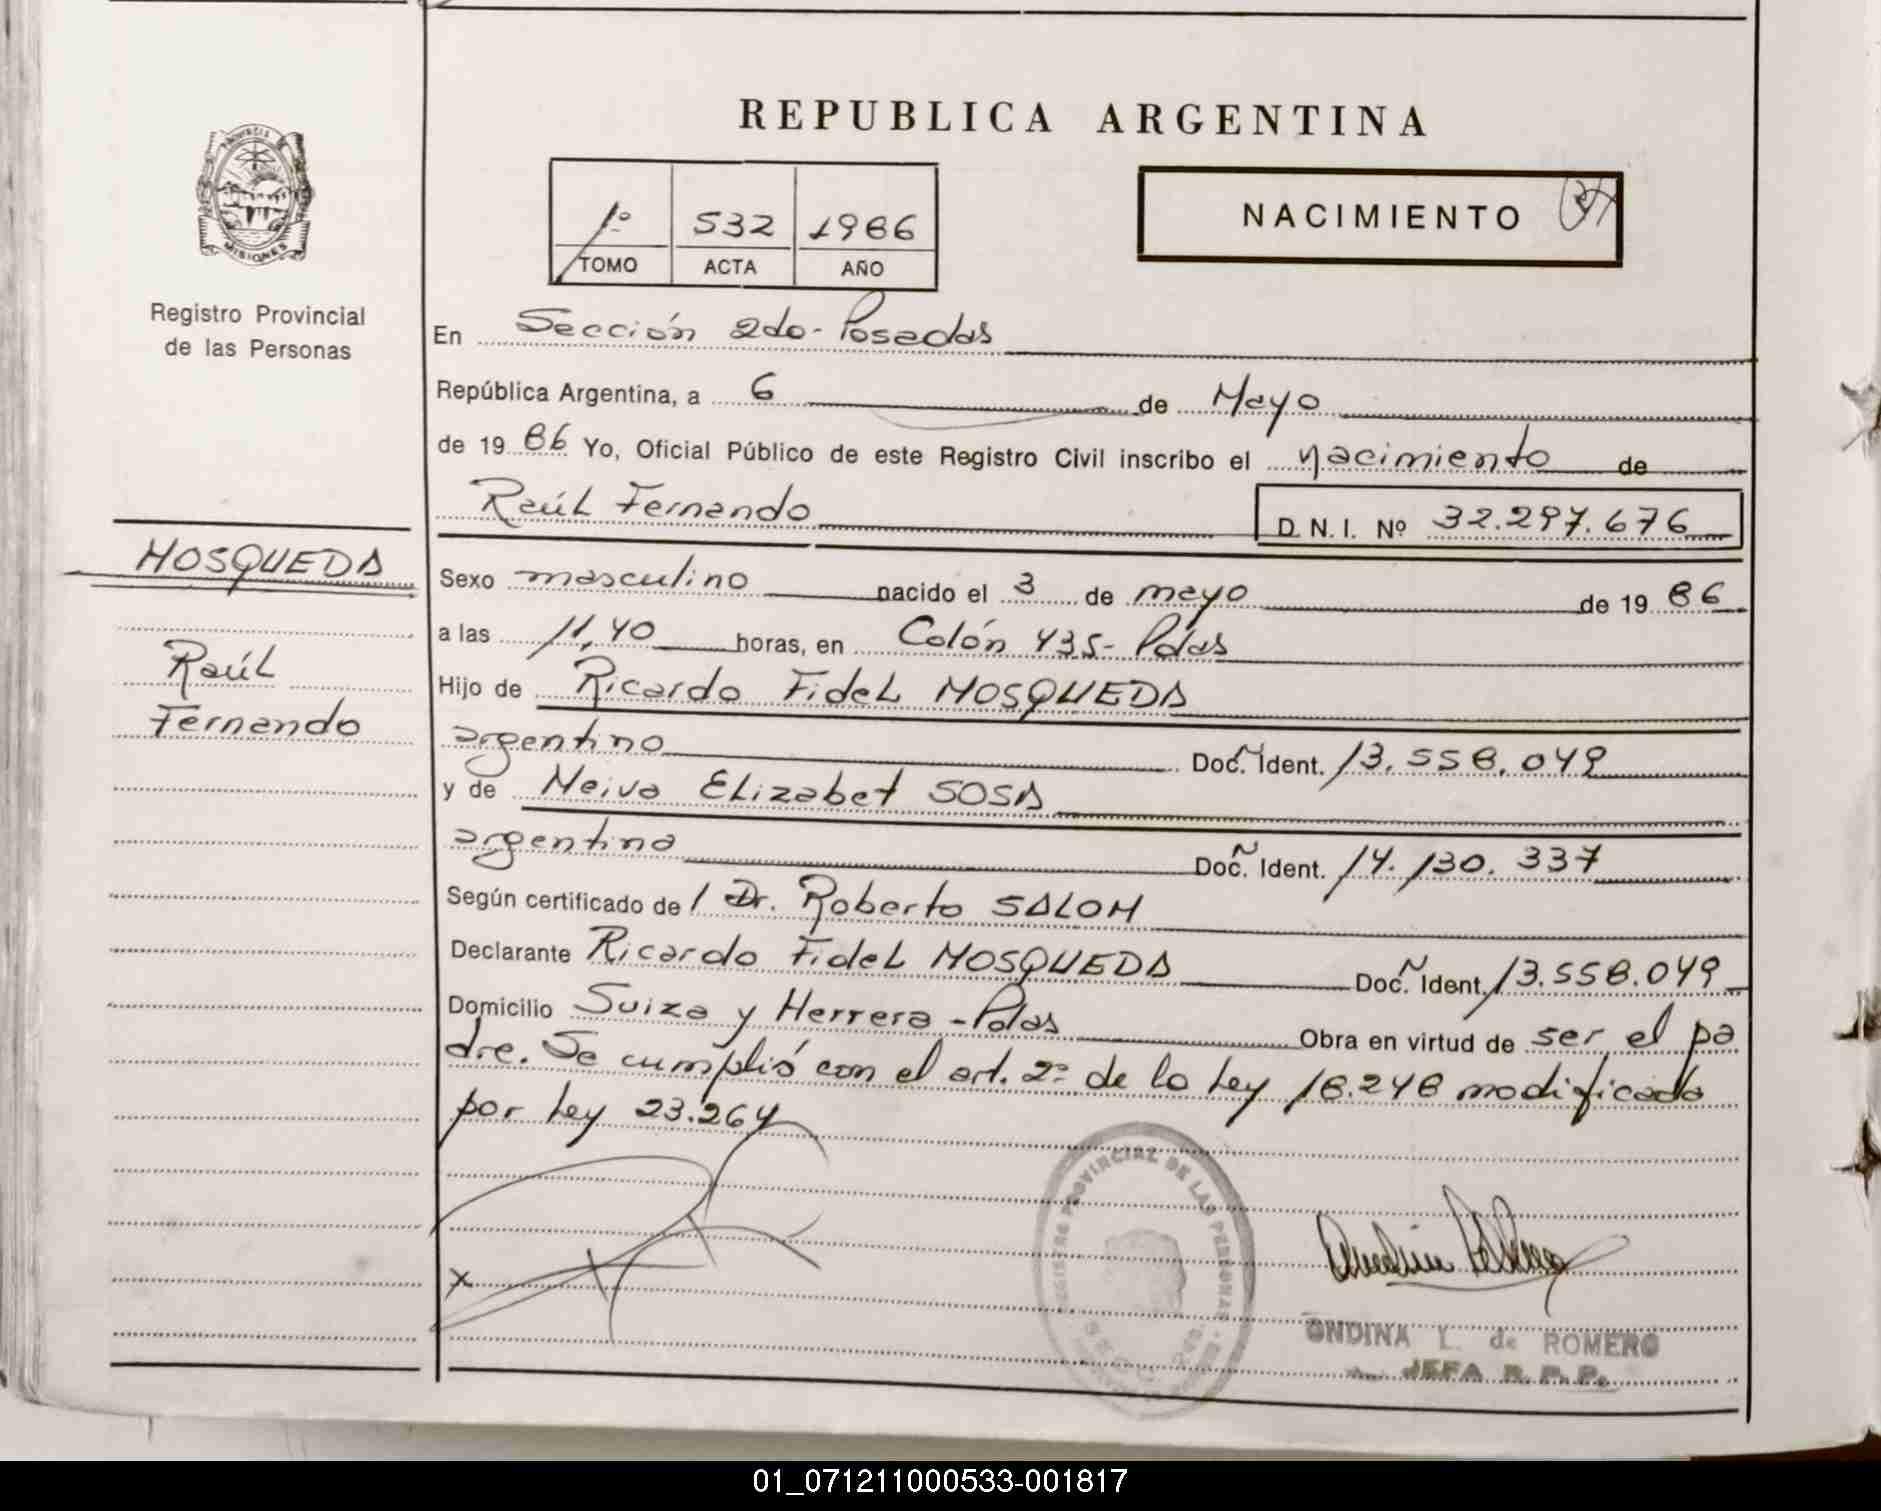 REPUBLICA ARGENTINA
PROVINCIA DE
MISIONES
Registro Provincial
de las Personas
1º 532 1986
TOMO ACTA AÑO
NACIMIENTO
En Sección 2do - Posadas
República Argentina, a 6 de Mayo
de 1986 Yo, Oficial Público de este Registro Civil inscribo el nacimiento de
Raúl Fernando D.N.I. Nº 32.297.676
MOSQUEDA
Raúl
Fernando
Sexo masculino nacido el 3 de mayo de 1986
a las 11,40 horas, en Colón 435 - Pdas
Hijo de Ricardo Fidel MOSQUEDA
argentino Doc. Ident. 13.558.049
y de Neiva Elizabet SOSA
argentina Doc. Ident. 14.130.337
Según certificado de l Dr. Roberto SALOM
Declarante Ricardo Fidel MOSQUEDA Doc. Ident. 13.558.049
Domicilio Suiza y Herrera - Pdas Obra en virtud de ser el pa
dre. Se cumplió con el art. 2º de la Ley 18.248 modificada
por Ley 23.264
x
REGISTRO PROVINCIAL DE LAS PERSONAS
ONDINA L. de ROMERO
JEFA R.P.P.
01_071211000533-001817